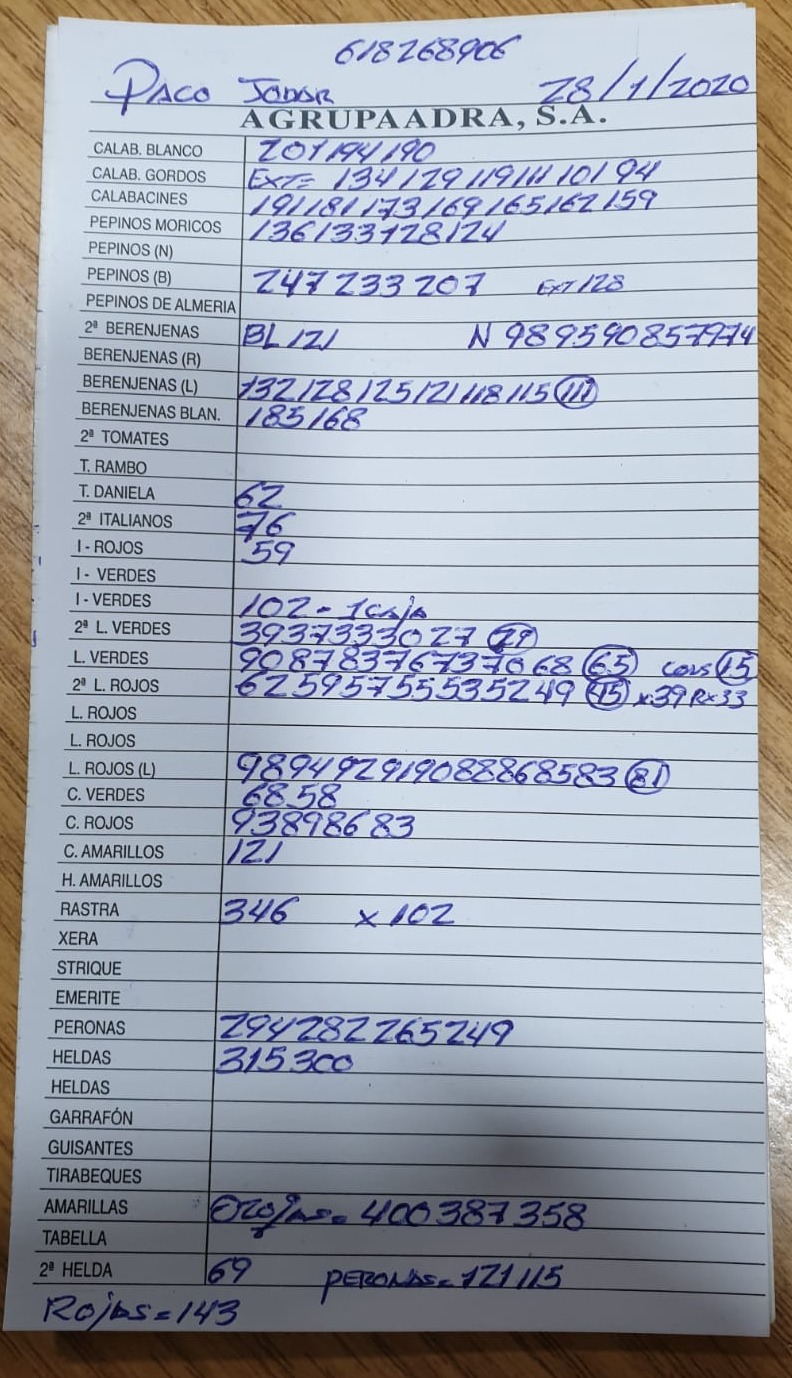 618268906
PACO JODAR 28/1/2020
AGRUPAADRA, S.A.
CALAB. BLANCO 201 194 190
CALAB. GORDOS EXT= 134 129 119 111 101 94
CALABACINES 191 181 173 169 165 162 159
PEPINOS MORICOS 136 133 128 124
PEPINOS (N)
PEPINOS (B) 247 233 207 EXT 128
PEPINOS DE ALMERIA
2ª BERENJENAS BL 121 N 98 95 90 85 79 74
BERENJENAS (R)
BERENJENAS (L) 132 128 125 121 118 115 111
BERENJENAS BLAN. 185 168
2ª TOMATES
T. RAMBO
T. DANIELA 62
2ª ITALIANOS 76
I - ROJOS 59
I - VERDES
I - VERDES 102 - 1 caja
2ª L. VERDES 39 37 33 30 27
L. VERDES 90 87 83 76 73 70 68 65 cons 15
2ª L. ROJOS 62 59 57 55 53 52 49 45 x39 Rx33
L. ROJOS
L. ROJOS
L. ROJOS (L) 98 94 92 91 90 88 86 85 83 81
C. VERDES 68 58
C. ROJOS 93 89 86 83
C. AMARILLOS 121
H. AMARILLOS
RASTRA 346 x 102
XERA
STRIQUE
EMERITE
PERONAS 294 282 265 249
HELDAS 315 300
HELDAS
GARRAFÓN
GUISANTES
TIRABEQUES
AMARILLAS = 400 387 358
TABELLA
2ª HELDA 69 PERONAS = 121 115
Rojas = 143